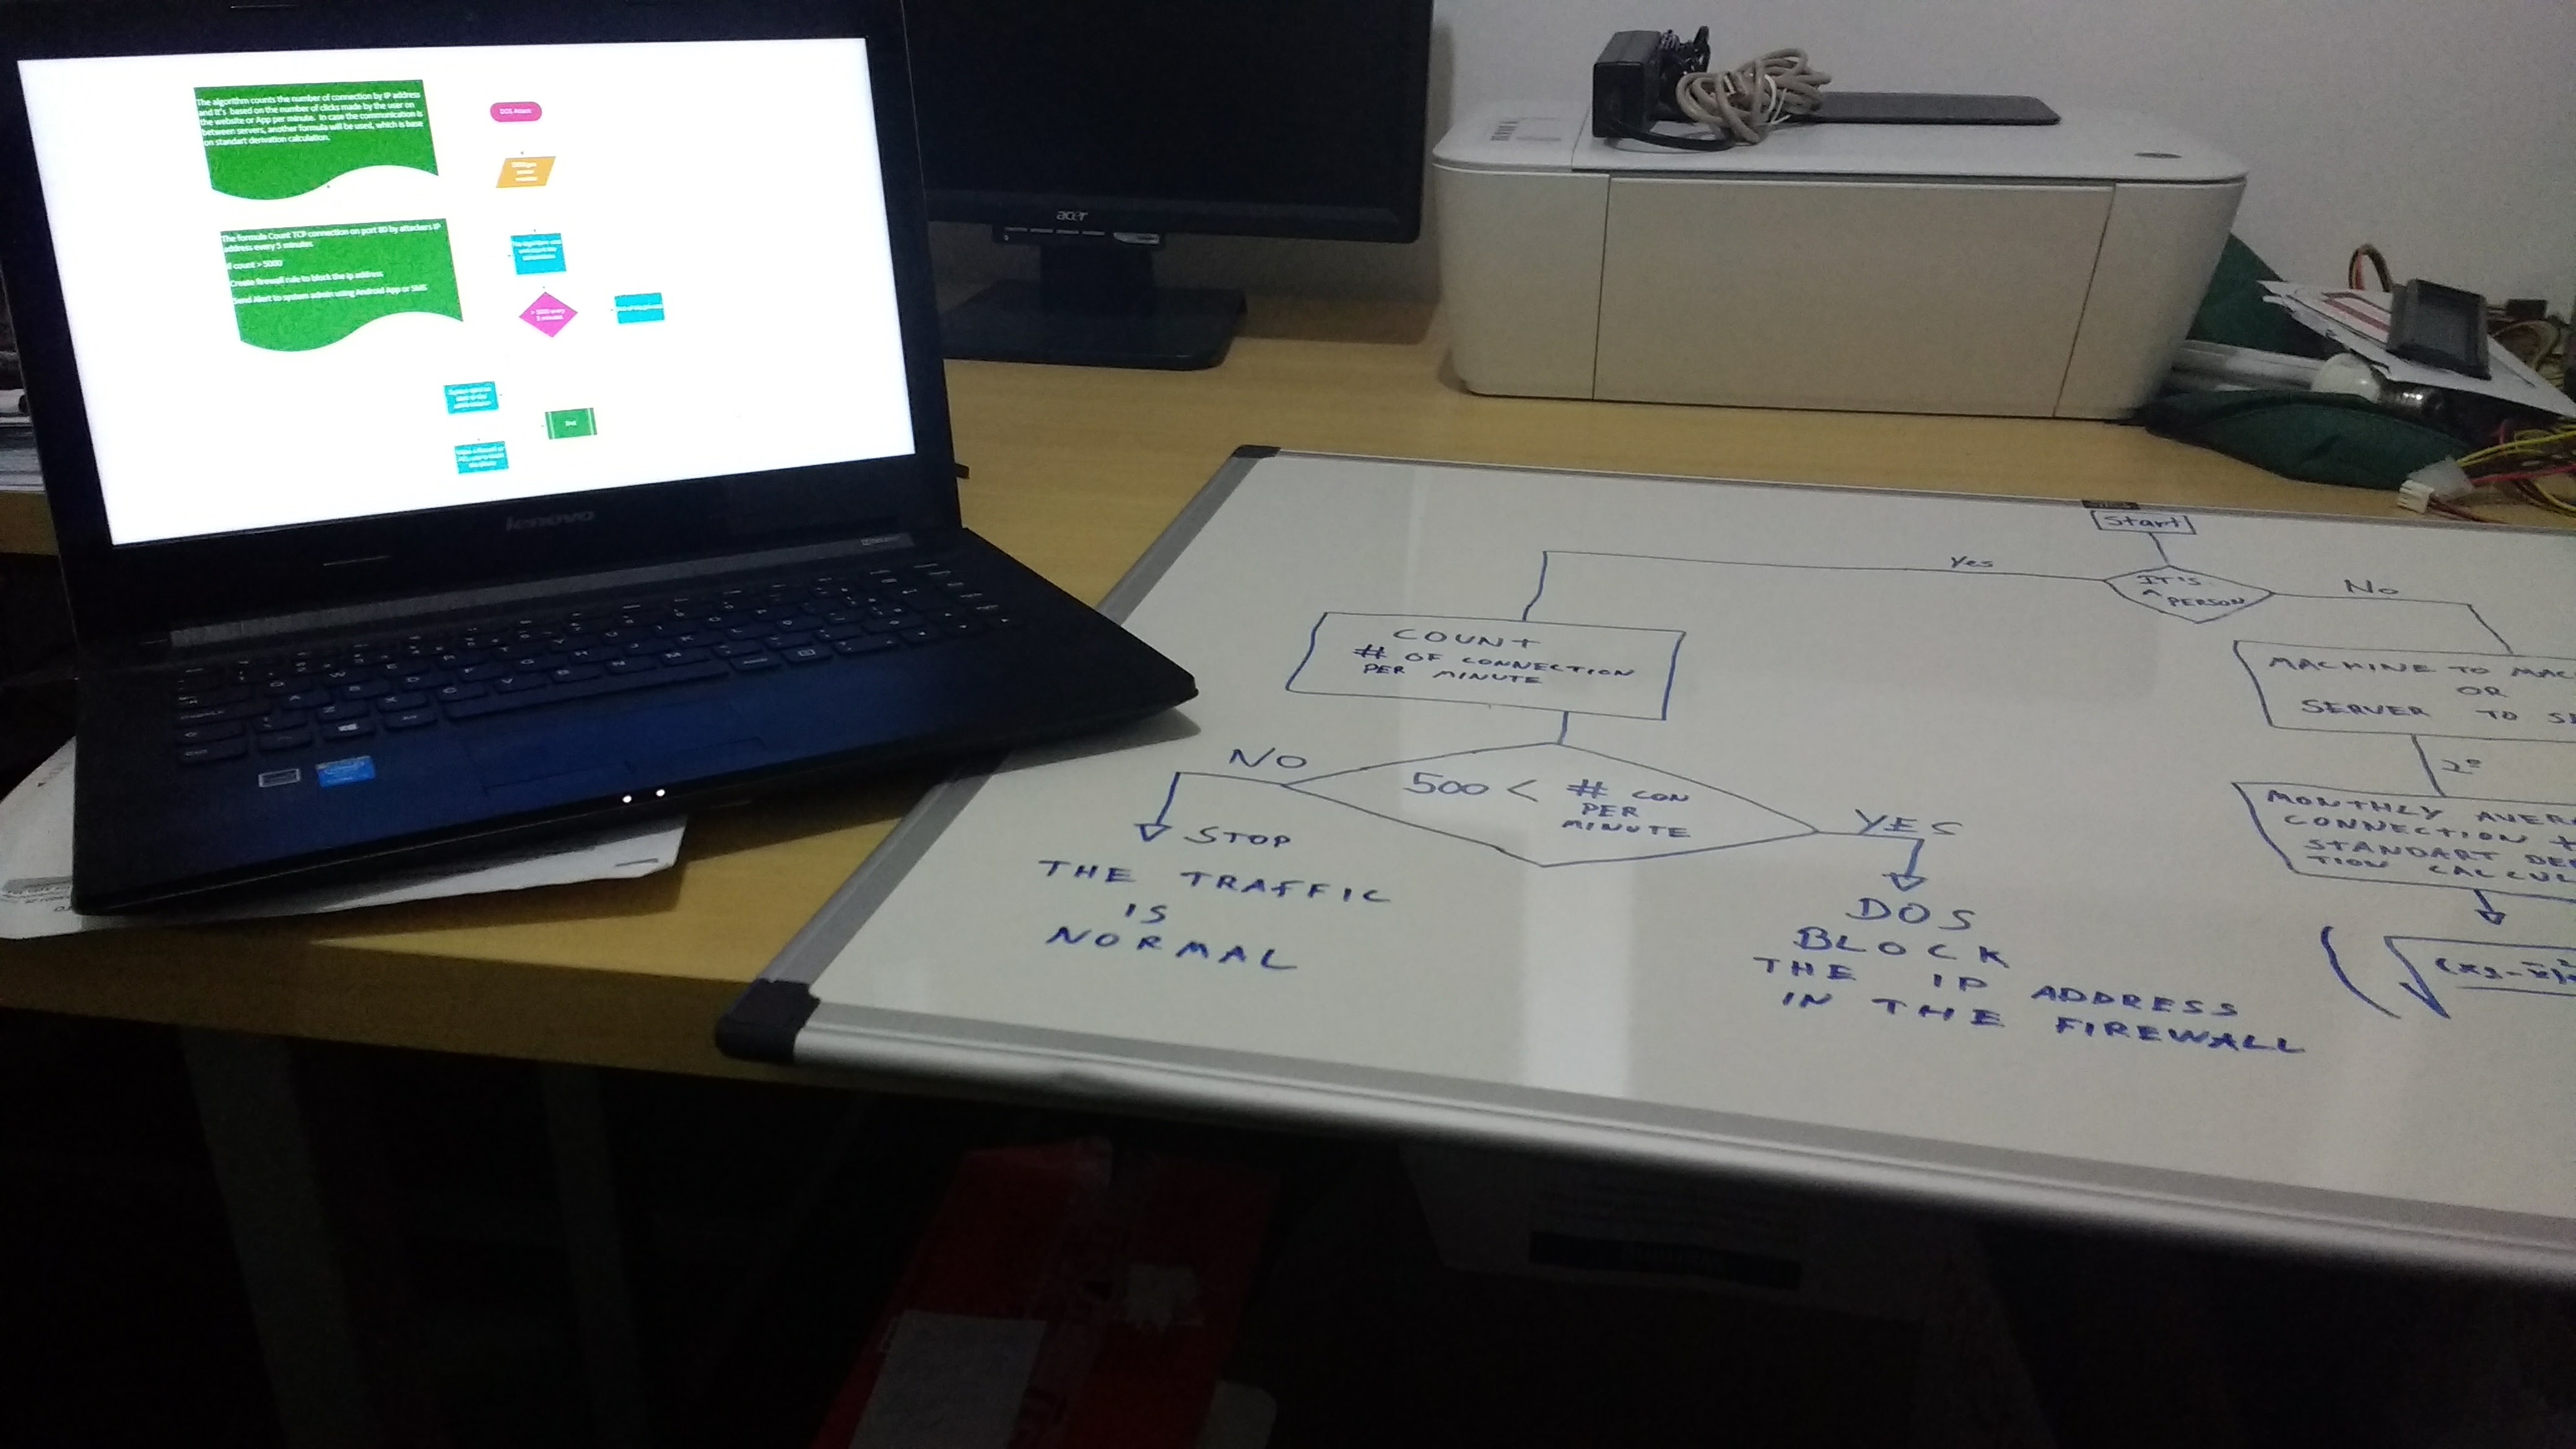 The algorithm counts the number of connection by IP address
and It's based on the number of clicks made by the user on
the website or App per minute. In case the communication is
between servers, another formula will be used, which is base
on standart derivation calculation.
The formula Count TCP connection on port 80 by attackers IP
address every 5 minutes
If count > 5000
Create firewall rule to block the ip address
Send Alert to system admin using Android App or SMS
DOS Attack
> 5000 every
5 minutes
End
lenovo
acer
Start
IT'S
A PERSON
Yes
No
COUNT
# OF CONNECTION
PER MINUTE
NO
500 < # CON
PER
MINUTE
YES
STOP
THE TRAFFIC
IS
NORMAL
DOS
BLOCK
THE IP ADDRESS
IN THE FIREWALL
MACHINE TO MAC
OR
SERVER TO SE
2º
MONTHLY AVER
CONNECTION +
STANDART DER
TION CALCUL